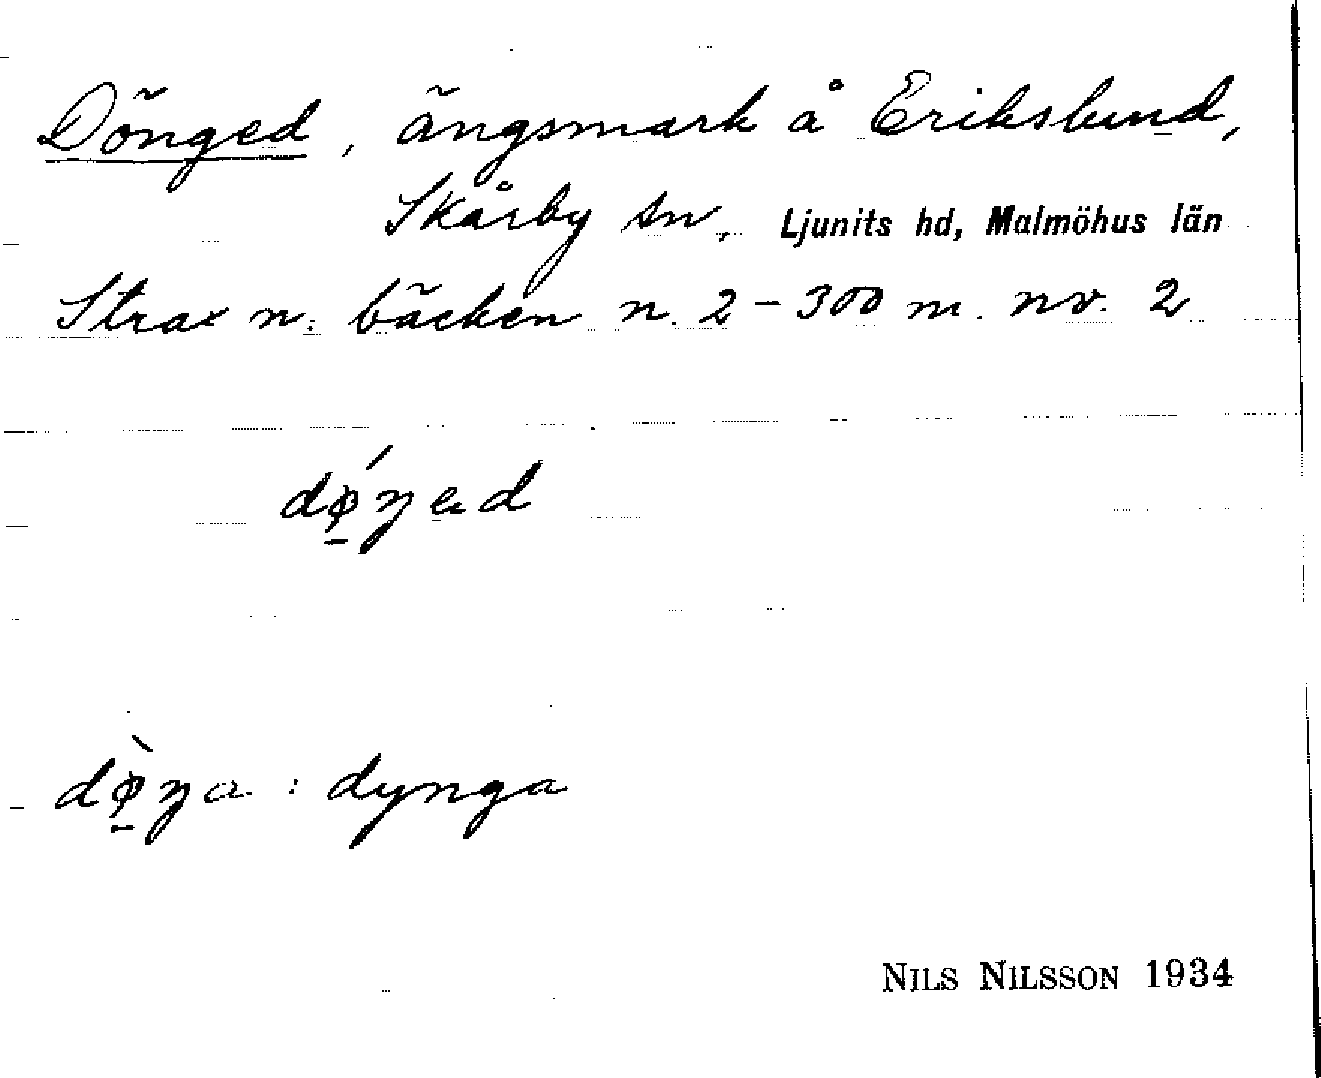 Dönged, ängsmark å Erikslund,
Skårby sn, Ljunits hd, Malmöhus län
Strax n: bäcken n. 2-300 m. nv. 2
dǿ̱ŋed
dø̱̀ŋa : dynga
NILS NILSSON 1934